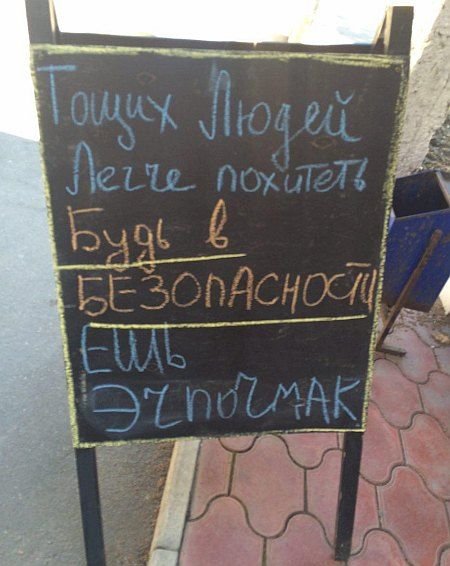 Тощих Людей
Легче похитеть
Будь в
БЕЗОПАСНОСТИ
ЕШЬ
ЭЧПОЧМАК